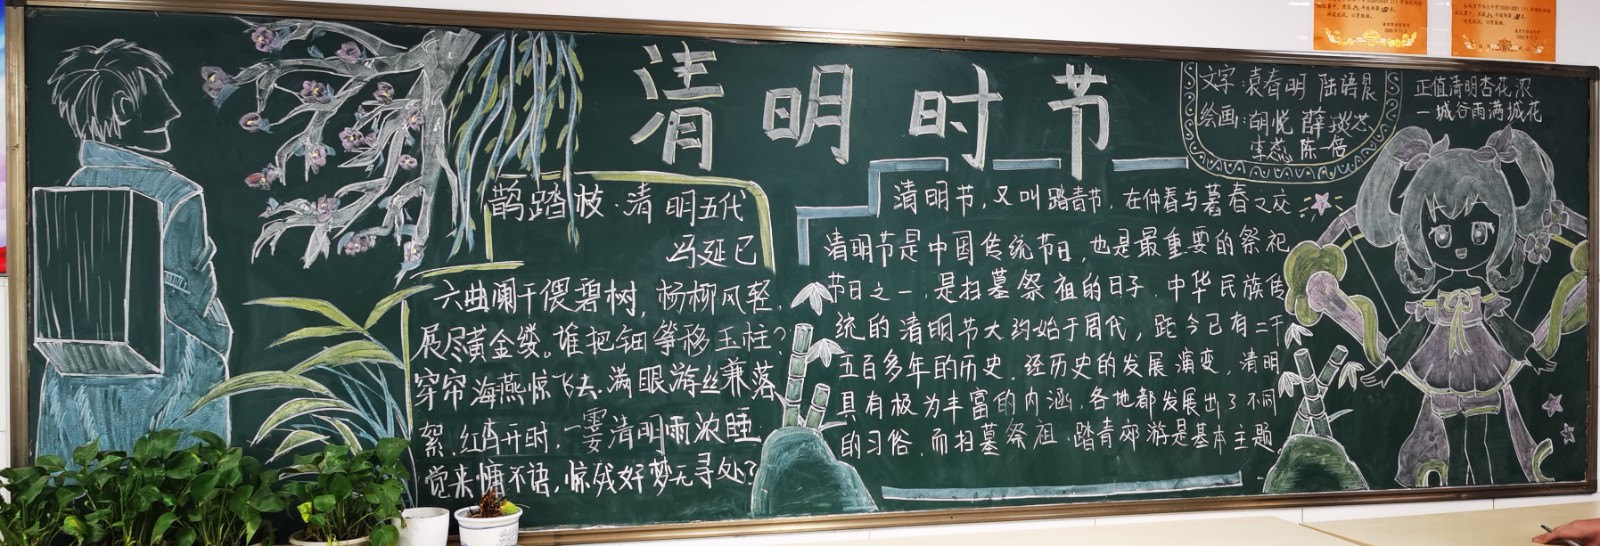 清明时节
鹊踏枝·清明五代
冯延巳
六曲阑干偎碧树，杨柳风轻，
展尽黄金缕。谁把钿筝移玉柱？
穿帘海燕惊飞去。满眼游丝兼落
絮，红杏开时，一霎清明雨浓睡
觉来慵不语，惊残好梦无寻处
清明节，又叫踏青节，在仲春与暮春之交
清明节是中国传统节日，也是最重要的祭祀
节日之一，是扫墓祭祖的日子．中华民族传
统的清明节大约始于周代，距今已有二千
五百多年的历史．经历史的发展演变，清明
具有极为丰富的内涵，各地都发展出了不同
的习俗，而扫墓祭祖，踏青郊游是基本主题．
文字：袁春明 陆语晨
绘画：胡悦 薛琰芯
李蕊 陈一倍
正值清明杏花浓
一城谷雨满城花